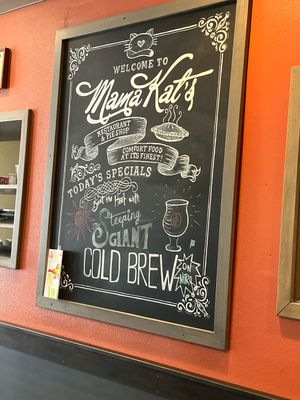 WELCOME TO
Mama Kat's
RESTAURANT
& PIE SHOP
COMFORT FOOD
AT ITS FINEST!
TODAY'S SPECIALS
Beat the Heat with
GIANT
COLD BREW
ON
NITRO